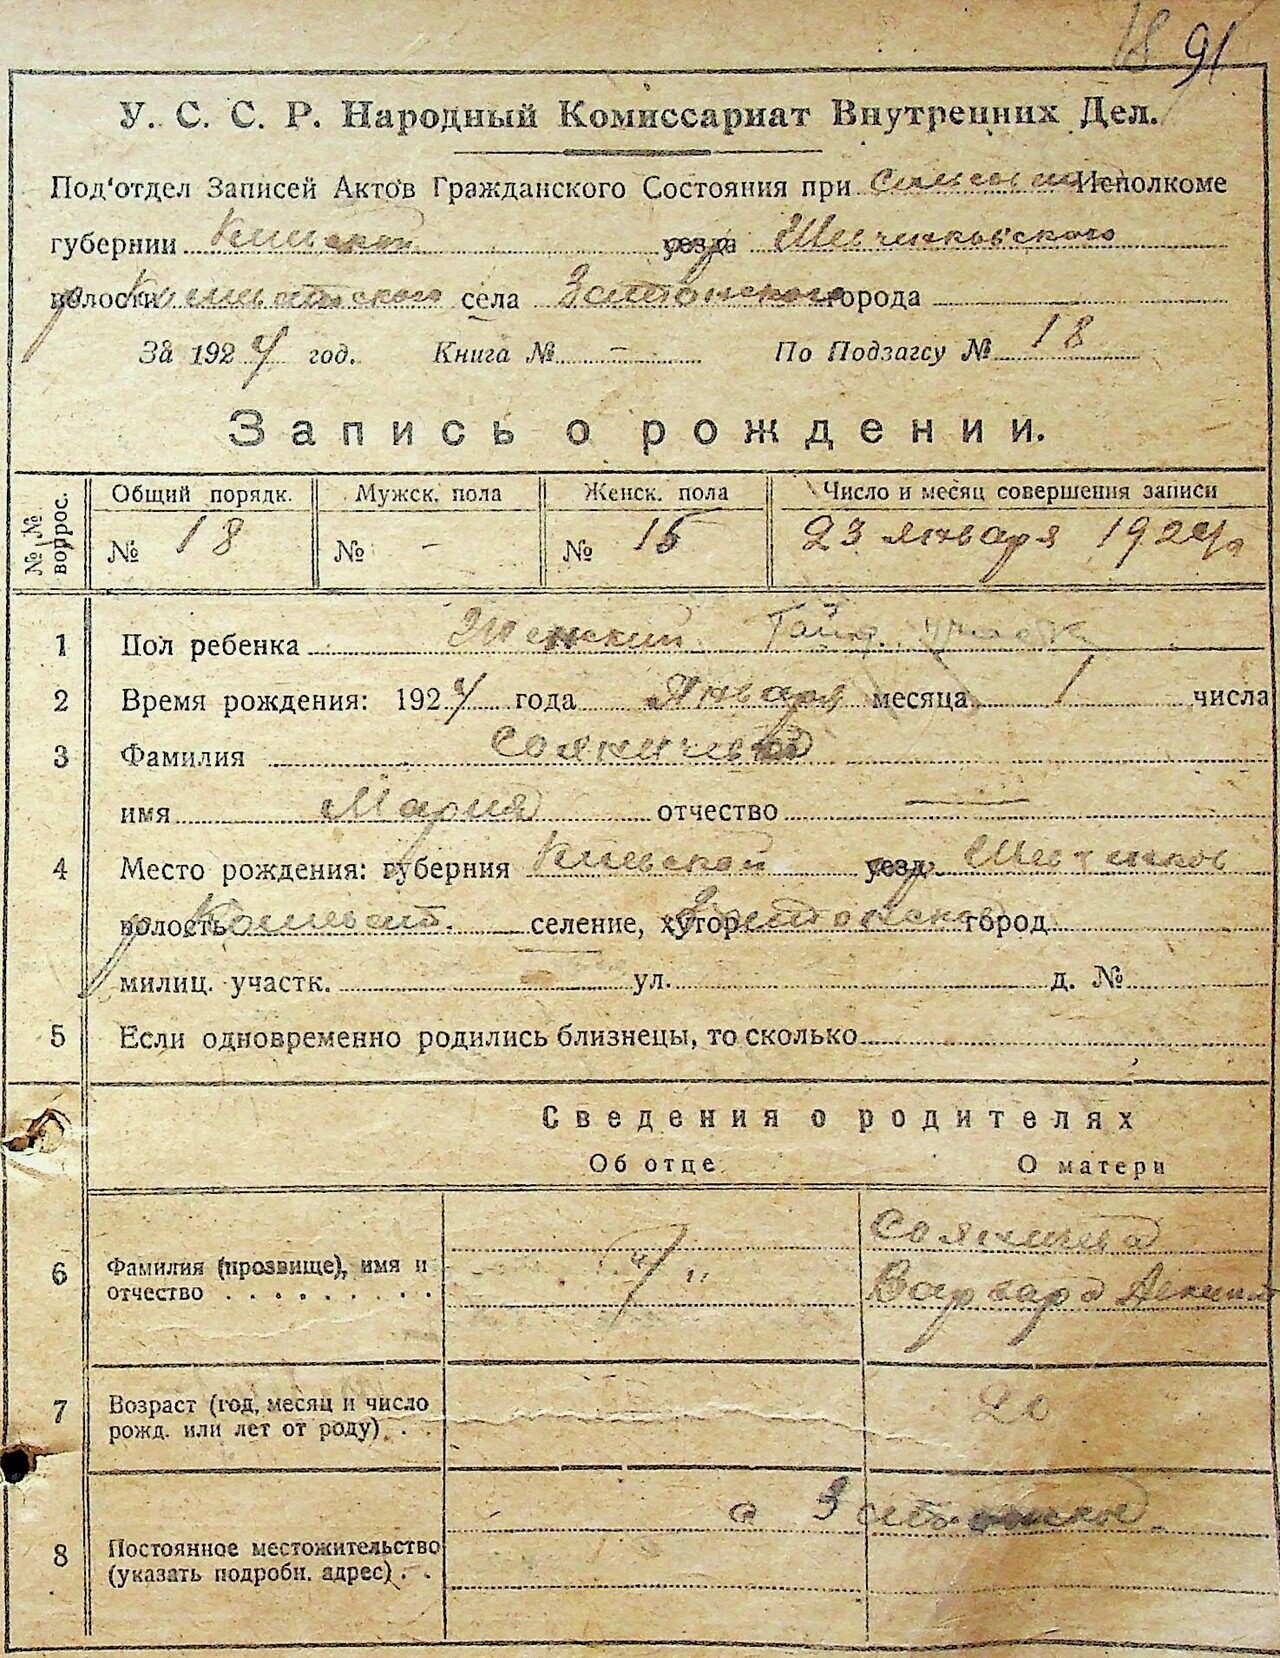 18 91
У. С. С. Р. Народный Комиссариат Внутренних Дел.
Под'отдел Записей Актов Гражданского Состояния при Исполкоме
губернии Киевской уезда Шевченковского
волости села города
За 1924 год. Книга № - По Подзагсу № 18
Запись о рождении.
№№ вопрос.
Общий порядк. Мужск. пола Женск. пола Число и месяц совершения записи
№ 18 № - № 15 23 января 1924 г
1 Пол ребенка Женский
2 Время рождения: 1924 года Января месяца 1 числа
3 Фамилия
имя Мария отчество
4 Место рождения: губерния Киевской уезд Шевченков
волость селение, хутор город
милиц. участк. ул. д. №
5 Если одновременно родились близнецы, то сколько
Сведения о родителях
Об отце О матери
6 Фамилия (прозвище), имя и
отчество Варвара
7 Возраст (год, месяц и число
рожд. или лет от роду) 20
8 Постоянное местожительство
(указать подробн. адрес)